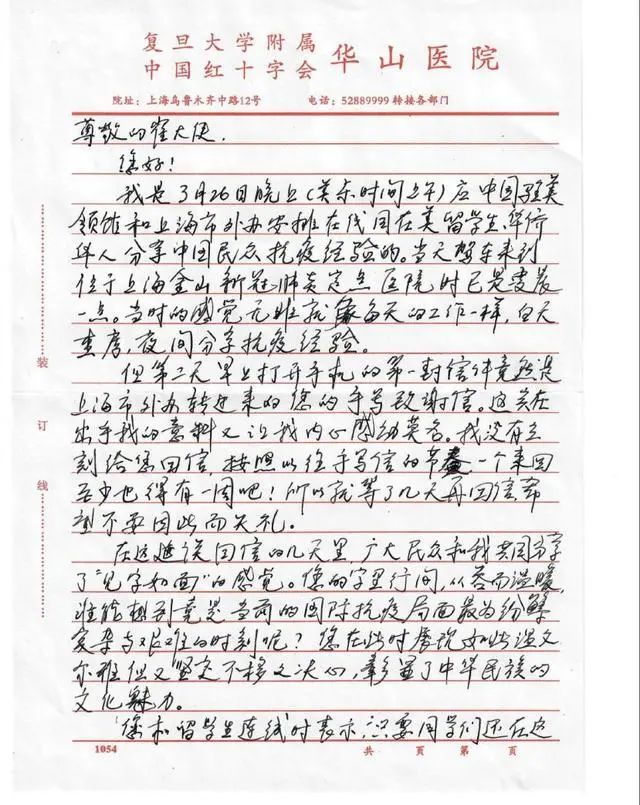 复旦大学附属
中国红十字会 华山医院
院址：上海乌鲁木齐中路12号 电话：52889999 转接各部门
尊敬的崔大使，
您好！
我是3月26日晚上（美东时间上午）应中国驻美
领馆和上海市外办安排在线同在美留学生、华侨
华人分享中国民众抗疫经验的。当天驾车来到
位于上海金山新冠肺炎定点医院时已是凌晨
一点。当时的感觉无非就像每天的工作一样，白天
查房，夜间分享抗疫经验。
但第二天早上打开手机的第一封信件竟然是
上海市外办转过来的您的手写致谢信。这实在
出乎我的意料又让我内心感动莫名。我没有立
刻给您回信，按照以往手写信的节奏一个来回
至少也得有一周吧！所以就等了几天再回信，希
望不要因此而失礼。
在这延误回信的几天里，广大民众和我共同分享
了“见字如面”的感觉。您的字里行间，从容而温暖，
谁能想到竟是当前的国际抗疫局面最为纷繁
复杂与艰难的时刻呢？您在此时居然如此温文
尔雅但又坚定不移之决心，彰显了中华民族的
文化魅力。
您和留学生连线时表示，只要同学们还在这
装
订
线
1054 共 页 第 页